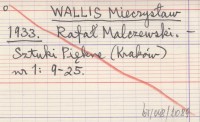 WALLIS Mieczysław
1933. Rafał Malczewski. –
Sztuki Piękne (Kraków)
nr 1: 9-25.